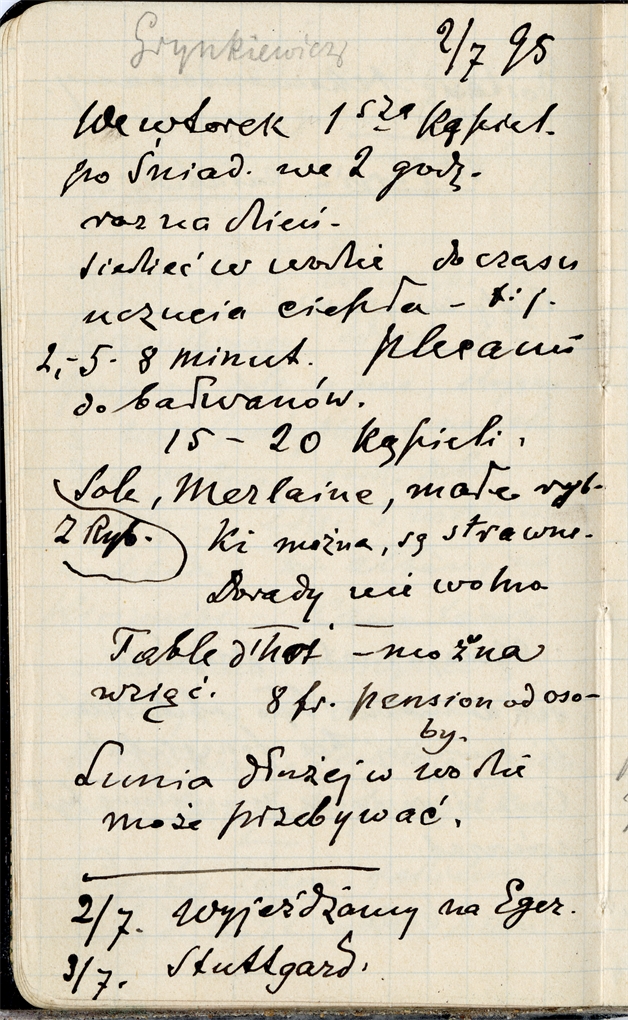 Grynkiewicz
2/7 95
We wtorek 1sza Kąpiel.
po śniad. we 2 godz.
raz na dzień.
siedzieć w wodzie do czasu
uczucia ciepła - t.j.
2,-5-8 minut. plecami
do bałwanów.
15-20 Kąpieli.
Sole, Merlaine, małe ryb-
z Ryb. ki można, są strawne.
Dorady nie wolno
Table d'hot - można
wziąć. 8 fr. pension od oso-
by.
Lunia dłużej w wodzie
może przebywać.
2/7. Wyjeżdżamy na Eger.
3/7. Stuttgard.